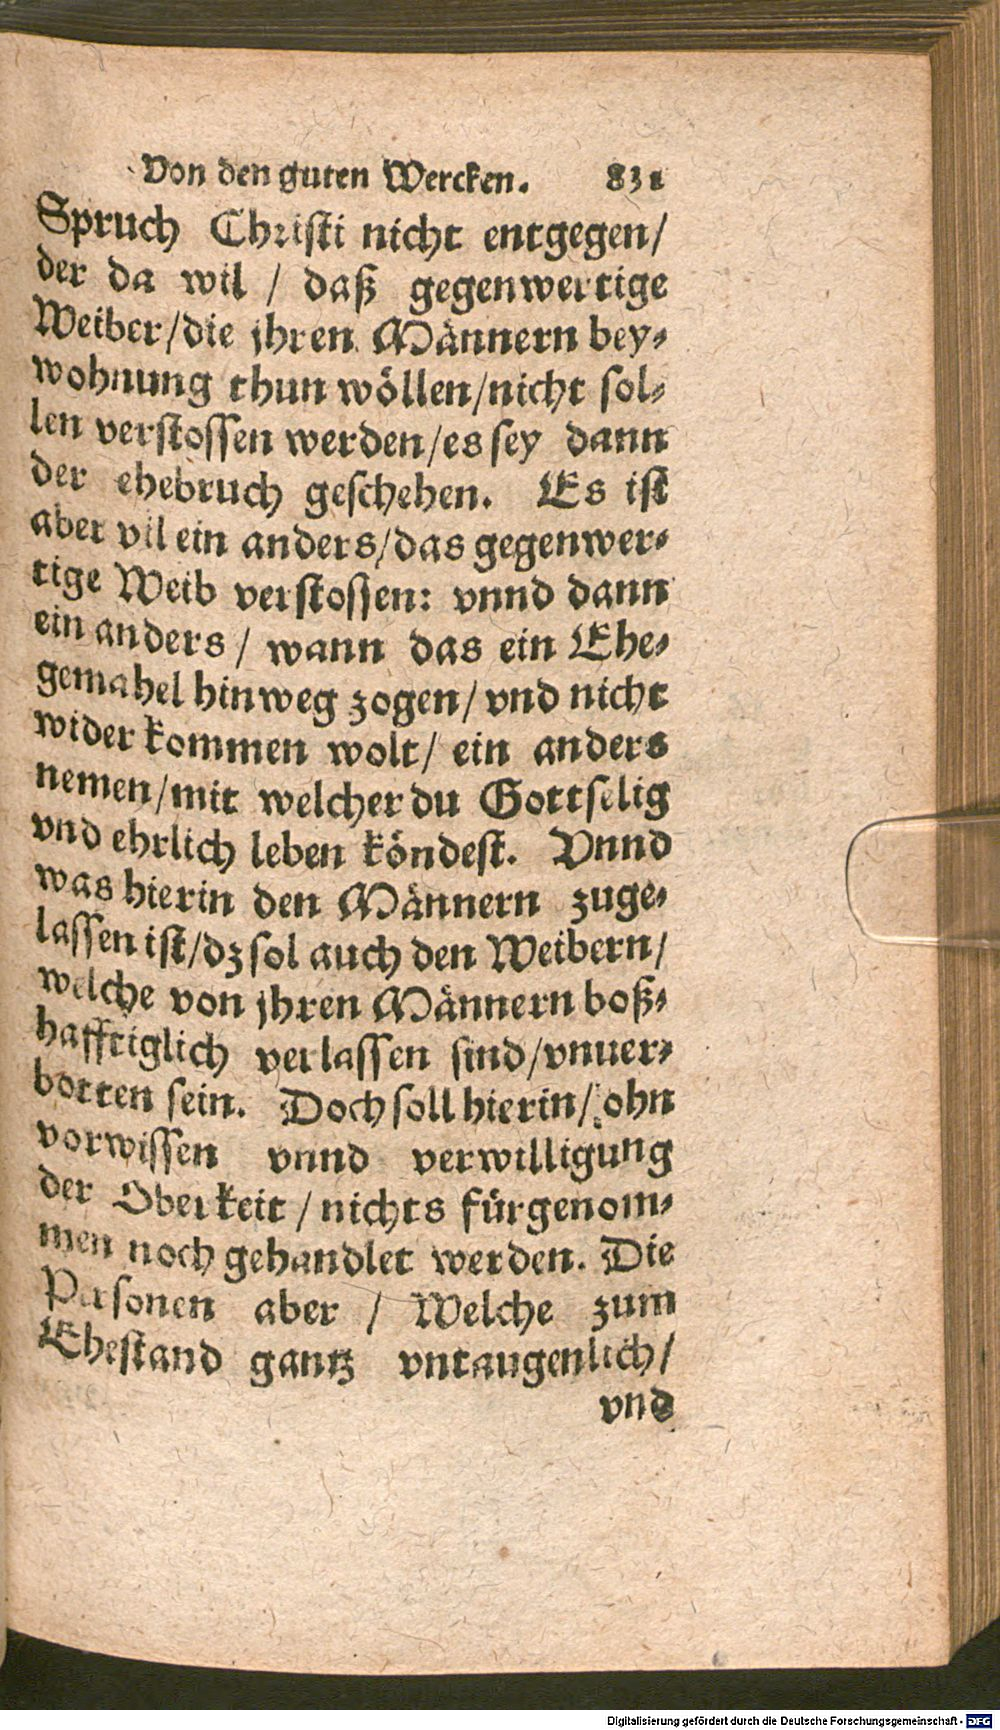 Von den guten Wercken. 831
Spruch Christi nicht entgegen/
der da wil / daß gegenwertige
Weiber/die jhren Männern bey-
wohnung thun wöllen/nicht sol-
len verstossen werden/es sey dann
der ehebruch geschehen. Es ist
aber vil ein anders/das gegenwer-
tige Weib verstossen: vnnd dann
ein anders / wann das ein Ehe-
gemahel hinweg zogen/vnd nicht
wider kommen wolt/ ein anders
nemen/mit welcher du Gottselig
vnd ehrlich leben köndest. Vnnd
was hierin den Männern zuge-
lassen ist/dz sol auch den Weibern/
welche von jhren Männern boß-
hafftiglich verlassen sind/vnuer-
botten sein. Doch soll hierin/ ohn
vorwissen vnnd verwilligung
der Oberkeit / nichts fürgenom-
men noch gehandlet werden. Die
Personen aber / Welche zum
Ehestand gantz vntaugenlich/
vnd
Digitalisierung gefördert durch die Deutsche Forschungsgemeinschaft - DFG